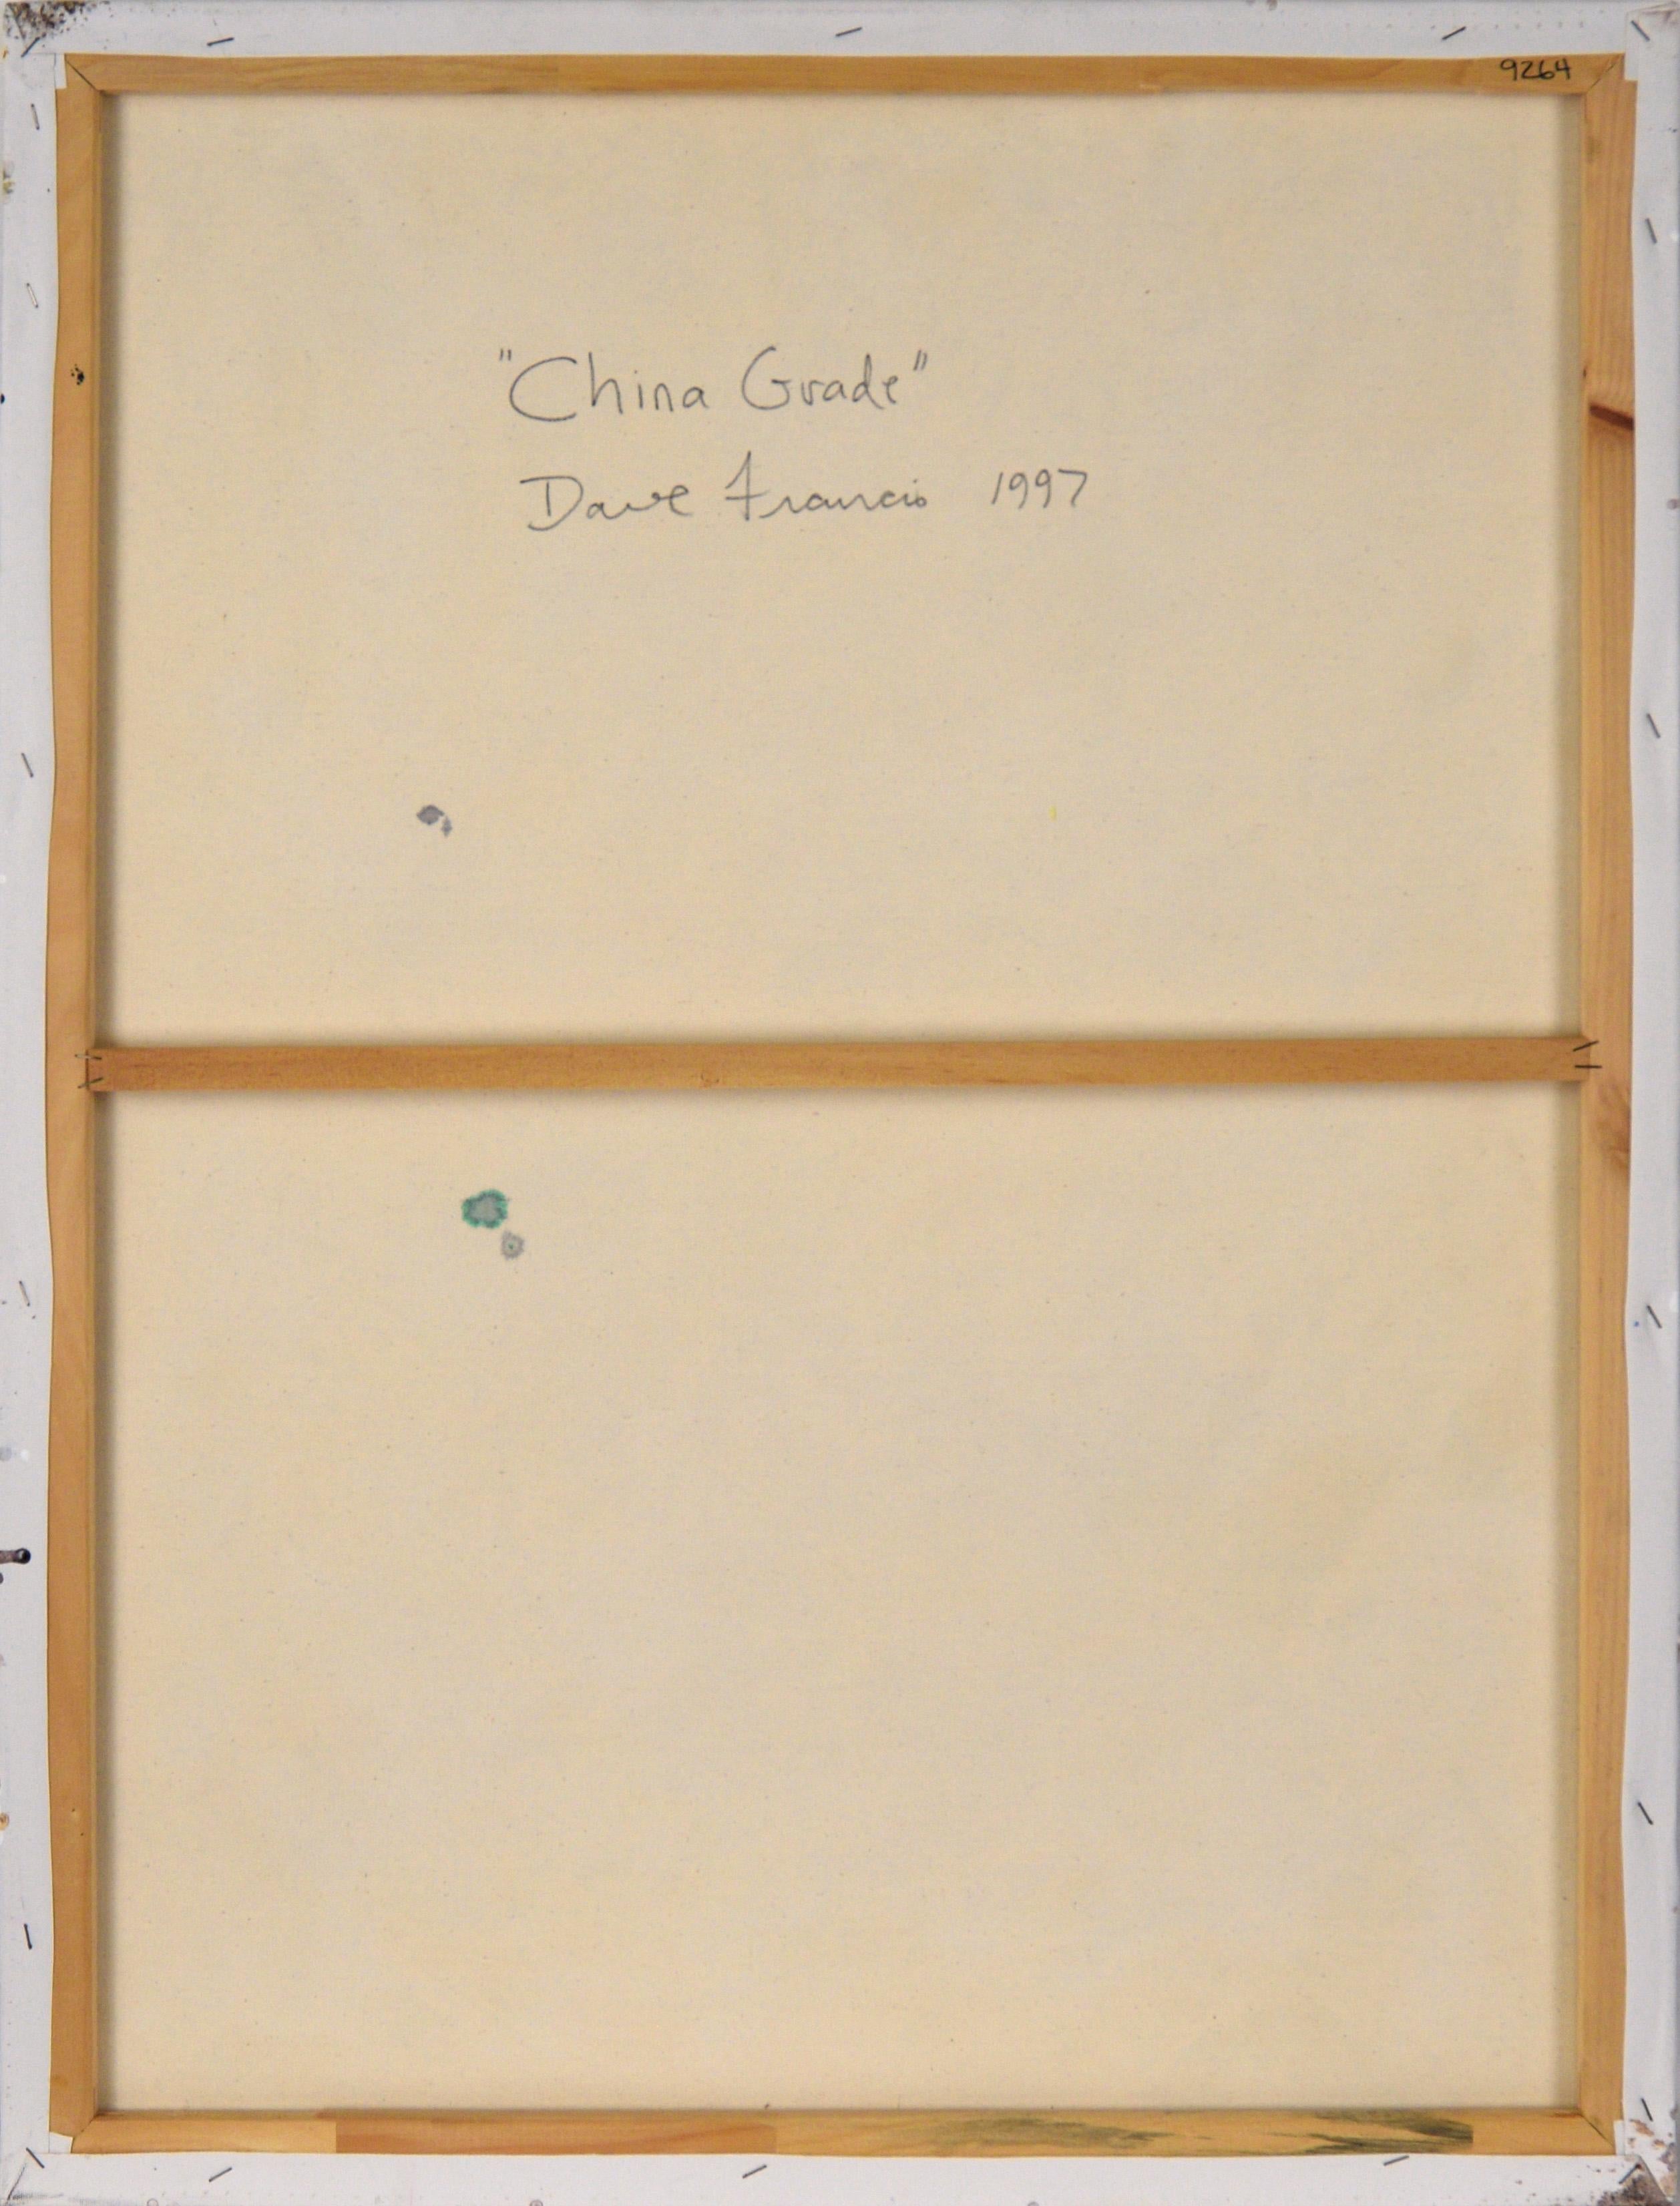 9264
"China Grade"
Dave Francis 1997